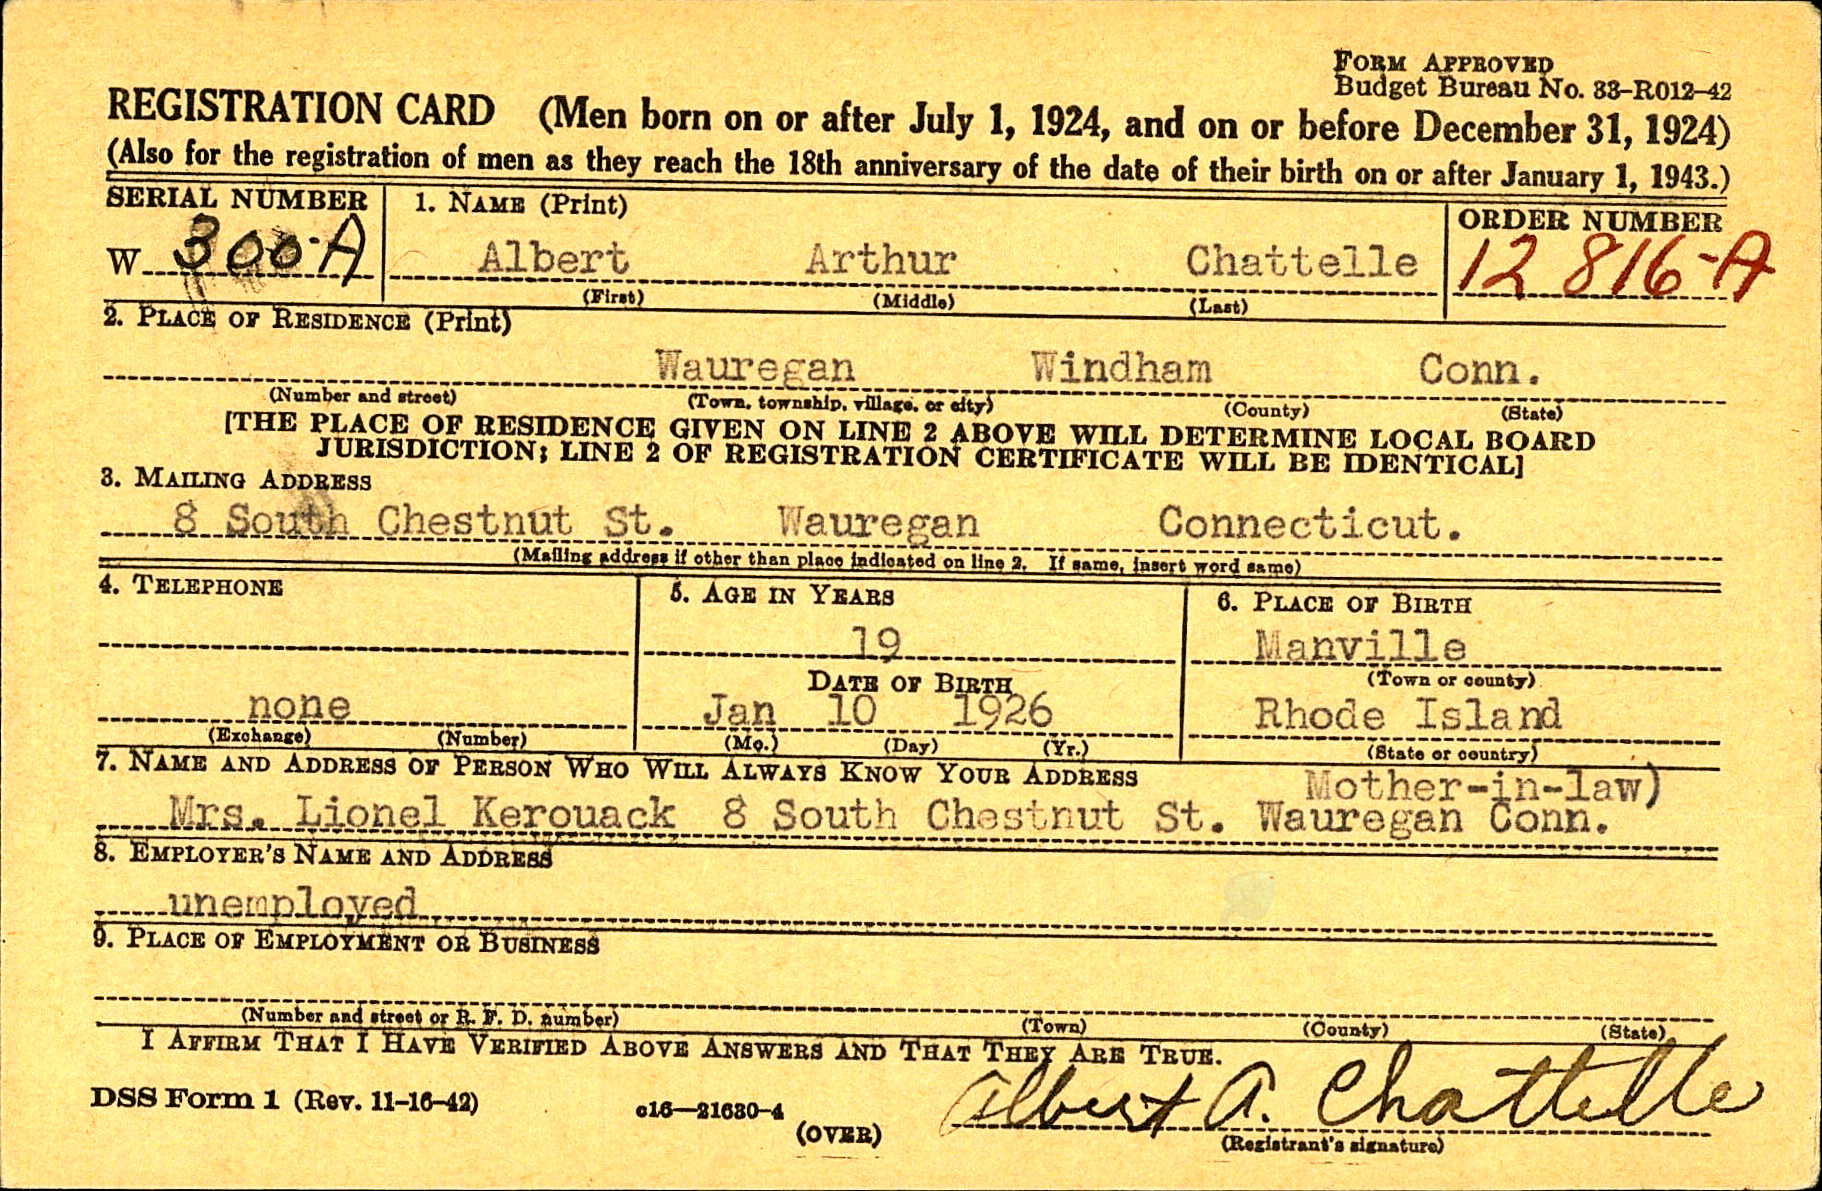 FORM APPROVED
Budget Bureau No. 33-R012-42
REGISTRATION CARD (Men born on or after July 1, 1924, and on or before December 31, 1924)
(Also for the registration of men as they reach the 18th anniversary of the date of their birth on or after January 1, 1943.)
SERIAL NUMBER 1. NAME (Print) ORDER NUMBER
W 300-A Albert Arthur Chattelle 12816-A
(First) (Middle) (Last)
2. PLACE OF RESIDENCE (Print)
Wauregan Windham Conn.
(Number and street) (Town, township, village, or city) (County) (State)
[THE PLACE OF RESIDENCE GIVEN ON LINE 2 ABOVE WILL DETERMINE LOCAL BOARD
JURISDICTION; LINE 2 OF REGISTRATION CERTIFICATE WILL BE IDENTICAL]
3. MAILING ADDRESS
8 South Chestnut St. Wauregan Connecticut.
(Mailing address if other than place indicated on line 2. If same, insert word same)
4. TELEPHONE 5. AGE IN YEARS 6. PLACE OF BIRTH
19 Manville
DATE OF BIRTH (Town or county)
none Jan 10 1926 Rhode Island
(Exchange) (Number) (Mo.) (Day) (Yr.) (State or country)
7. NAME AND ADDRESS OF PERSON WHO WILL ALWAYS KNOW YOUR ADDRESS
Mother-in-law)
Mrs. Lionel Kerouack 8 South Chestnut St. Wauregan Conn.
8. EMPLOYER'S NAME AND ADDRESS
unemployed
9. PLACE OF EMPLOYMENT OR BUSINESS
(Number and street or R. F. D. number) (Town) (County) (State)
I AFFIRM THAT I HAVE VERIFIED ABOVE ANSWERS AND THAT THEY ARE TRUE.
DSS Form 1 (Rev. 11-16-42) c16—21630-4 Albert A. Chattelle
(OVER) (Registrant's signature)